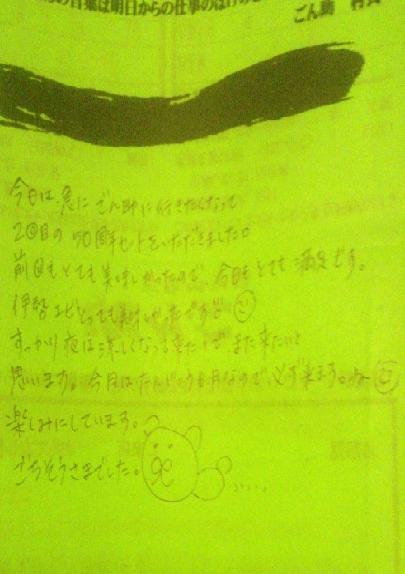 の言葉は明日からの仕事のはげみ
ごん助 村
今日は、急にごん助に行きたくなって
2回目の50周年セットをいただきました。
前回もとても美味しかったので今日もとても満足です。
伊勢エビとっても美味しかったですよ
すっかり夜は涼しくなって来たのでまた来たいと
思います。今月はたんじょう日月なので、必ず来ます。
楽しみにしています。
ごちそうさまでした。